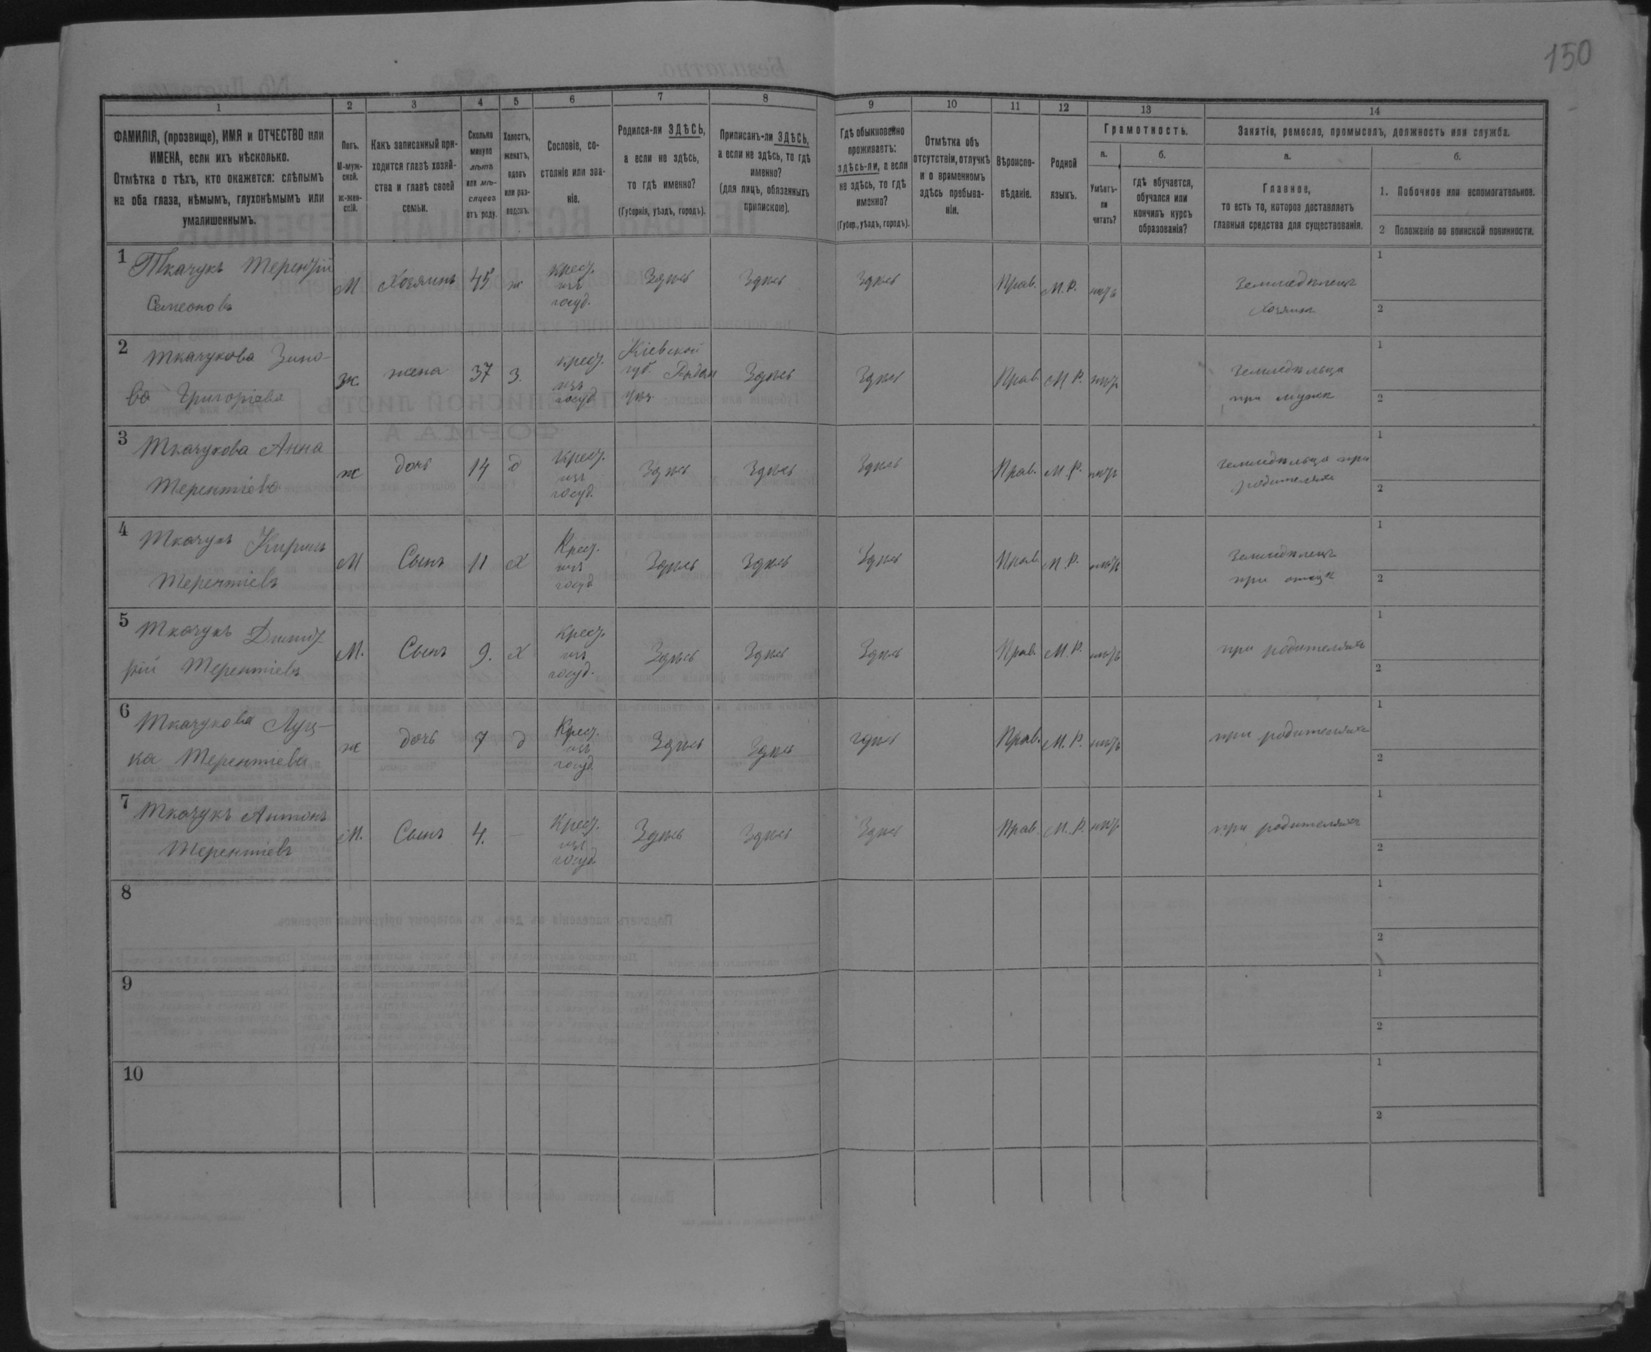 150
1 2 3 4 5 6 7 8 9 10 11 12 13 14
ФАМИЛІЯ, (прозвище), ИМЯ и ОТЧЕСТВО или
ИМЕНА, если ихъ нѣсколько.
Отмѣтка о тѣхъ, кто окажется: слѣпымъ
на оба глаза, нѣмымъ, глухонѣмымъ или
умалишеннымъ.
Полъ.
М-муж-
ской.
ж-жен-
скій.
Какъ записанный при-
ходится главѣ хозяй-
ства и главѣ своей
семьи.
Сколько
минуло
лѣтъ
или мѣ-
сяцевъ
отъ роду.
Холостъ,
женатъ,
вдовъ
или раз-
веденъ.
Сословіе, со-
стояніе или зва-
ніе.
Родился-ли ЗДѢСЬ,
а если не здѣсь,
то гдѣ именно?
(Губернія, уѣздъ, городъ).
Приписанъ-ли ЗДѢСЬ,
а если не здѣсь, то гдѣ
именно?
(для лицъ, обязанныхъ
припискою).
Гдѣ обыкновенно
проживаетъ:
здѣсь-ли, а если
не здѣсь, то гдѣ
именно?
(Губер., уѣздъ, городъ).
Отмѣтка объ
отсутствіи, отлучкѣ
и о временномъ
здѣсь пребыва-
ніи.
Вѣроиспо-
вѣданіе.
Родной
языкъ.
Грамотность.
а.
Умѣетъ-
ли
читать?
б.
гдѣ обучается,
обучался или
кончилъ курсъ
образованія?
Занятіе, ремесло, промыселъ, должность или служба.
а.
Главное,
то есть то, которое доставляетъ
главныя средства для существованія.
б.
1. Побочное или вспомогательное.
2 Положеніе по воинской повинности.
1 Ткачукъ Терентій
Семеоновъ
М Хозяинъ 45 ж Крест. изъ госуд. Здѣсь Здѣсь Здѣсь Прав. М.Р. нѣтъ Земледѣлецъ
Хозяинъ
1
2
2 Ткачукова Зино-
ва Григоріева
ж жена 37 з. крест. изъ госуд. Кіевской
губ.
Здѣсь Здѣсь Прав. М.Р. нѣтъ земледѣльца
при мужѣ
1
2
3 Ткачукова Анна
Терентіева
ж дочь 14 д Крест. изъ госуд. Здѣсь Здѣсь Здѣсь Прав. М.Р. нѣтъ земледѣльца при
родителяхъ
1
2
4 Ткачукъ Кирилъ
Терентіевъ
М Сынъ 11 Х Крест. изъ госуд. Здѣсь Здѣсь Здѣсь Прав. М.Р. нѣтъ Земледѣлецъ
при отцѣ
1
2
5 Ткачукъ Димит-
рій Терентіевъ
М. Сынъ 9. х крест. изъ госуд. Здѣсь Здѣсь Здѣсь Прав. М.Р. нѣтъ при родителяхъ
1
2
6 Ткачукова Луц-
ка Терентіева
ж дочь 7 д Крест. изъ госуд. Здѣсь Здѣсь здѣсь Прав. М.Р. нѣтъ при родителяхъ
1
2
7 Ткачукъ Антонъ
Терентіевъ
М. Сынъ 4. — Крест. изъ госуд. Здѣсь Здѣсь Здѣсь Прав. М.Р. нѣтъ при родителяхъ
1
2
8
1
2
9
1
2
10
1
2